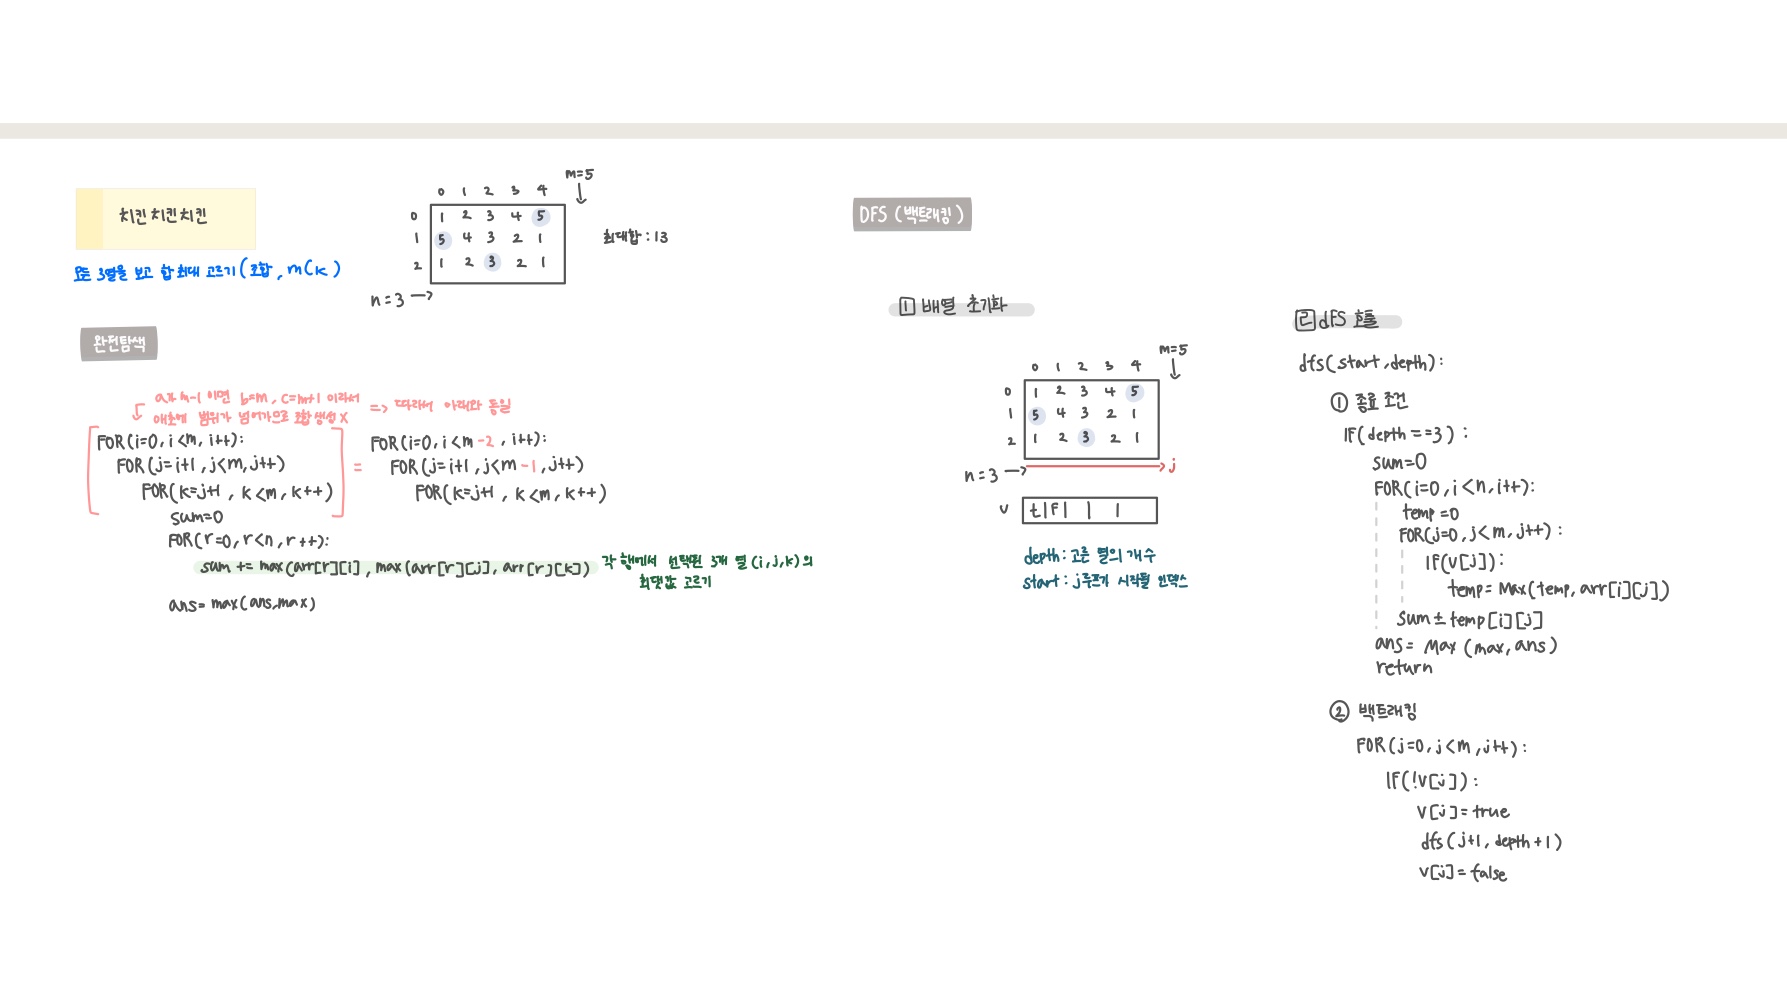 치킨치킨치킨
모든 3열을 보고 합 최대 고르기 (조합, mCk)
m=5
0 1 2 3 4
0 1 2 3 4 5
1 5 4 3 2 1
2 1 2 3 2 1
n=3
최대합 : 13
완전탐색
a가 m-1 이면 b=m, c=m+1 이라서
애초에 범위가 넘어가므로 조합 생성 X
=> 따라서 아래와 동일
FOR(i=0, i<m, i++):
FOR(j=i+1, j<m, j++)
FOR(k=j+1, k<m, k++)
=
FOR(i=0, i<m-2, i++):
FOR(j=i+1, j<m-1, j++)
FOR(k=j+1, k<m, k++)
sum=0
FOR(r=0, r<n, r++):
sum += max(arr[r][i], max(arr[r][j], arr[r][k])
각 행에서 선택된 3개 열 (i,j,k)의
최댓값 고르기
ans= max(ans,max)
DFS (백트래킹)
1 배열 초기화
m=5
0 1 2 3 4
0 1 2 3 4 5
1 5 4 3 2 1
2 1 2 3 2 1
n=3
j
v t F
depth : 고른 열의 개수
start : j루프가 시작될 인덱스
2 dFS 호출
dfs(start, depth):
① 종료 조건
IF(depth ==3) :
sum=0
FOR(i=0, i<n, i++):
temp =0
FOR(j=0, j<m, j++) :
IF(v[j]) :
temp= Max(temp, arr[i][j])
sum ± temp[i][j]
ans= Max (max, ans)
return
② 백트래킹
FOR(j=0, j<m, j++) :
IF(!v[j]) :
v[j]= true
dfs(j+1, depth+1)
v[j]= false